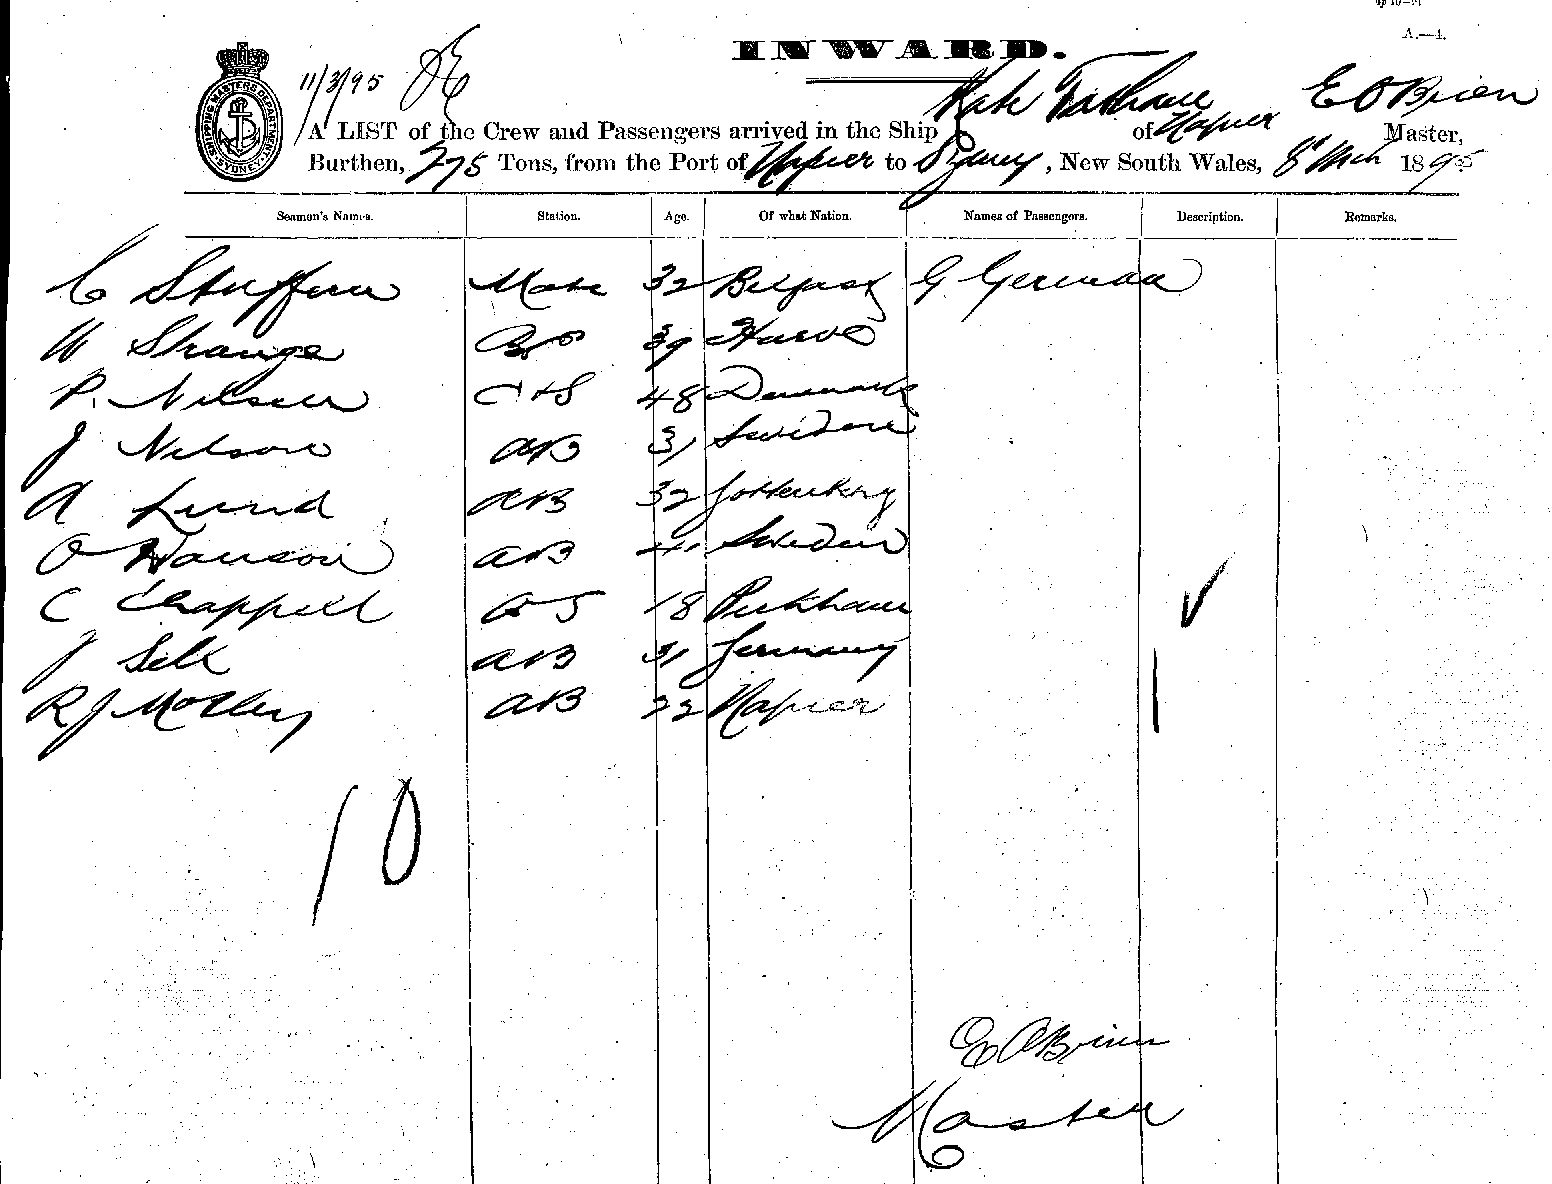 A.—4.
INWARD.
11/3/95
A LIST of the Crew and Passengers arrived in the Ship Kate Tatham of Napier E O'Brien Master,
Burthen, 275 Tons, from the Port of Napier to Sydney, New South Wales, 8th Mch 1895
SHIPPING MASTERS DEPARTMENT
Seamen's Names. Station. Age. Of what Nation. Names of Passengers. Description. Remarks.
C Mate 32 Belfast G. German
W Strange 39 Havre
P. Nilsen C & S 48 Denmark
J Nelson AB 31 Sweden
A Lund AB 32 Gottenberg
O Hanson AB 41 Sweden
C Chappell OS 18 Peckham
J Sell AB 31 Germany
R J Motley AB 22 Napier
10
E O'Brien
Master